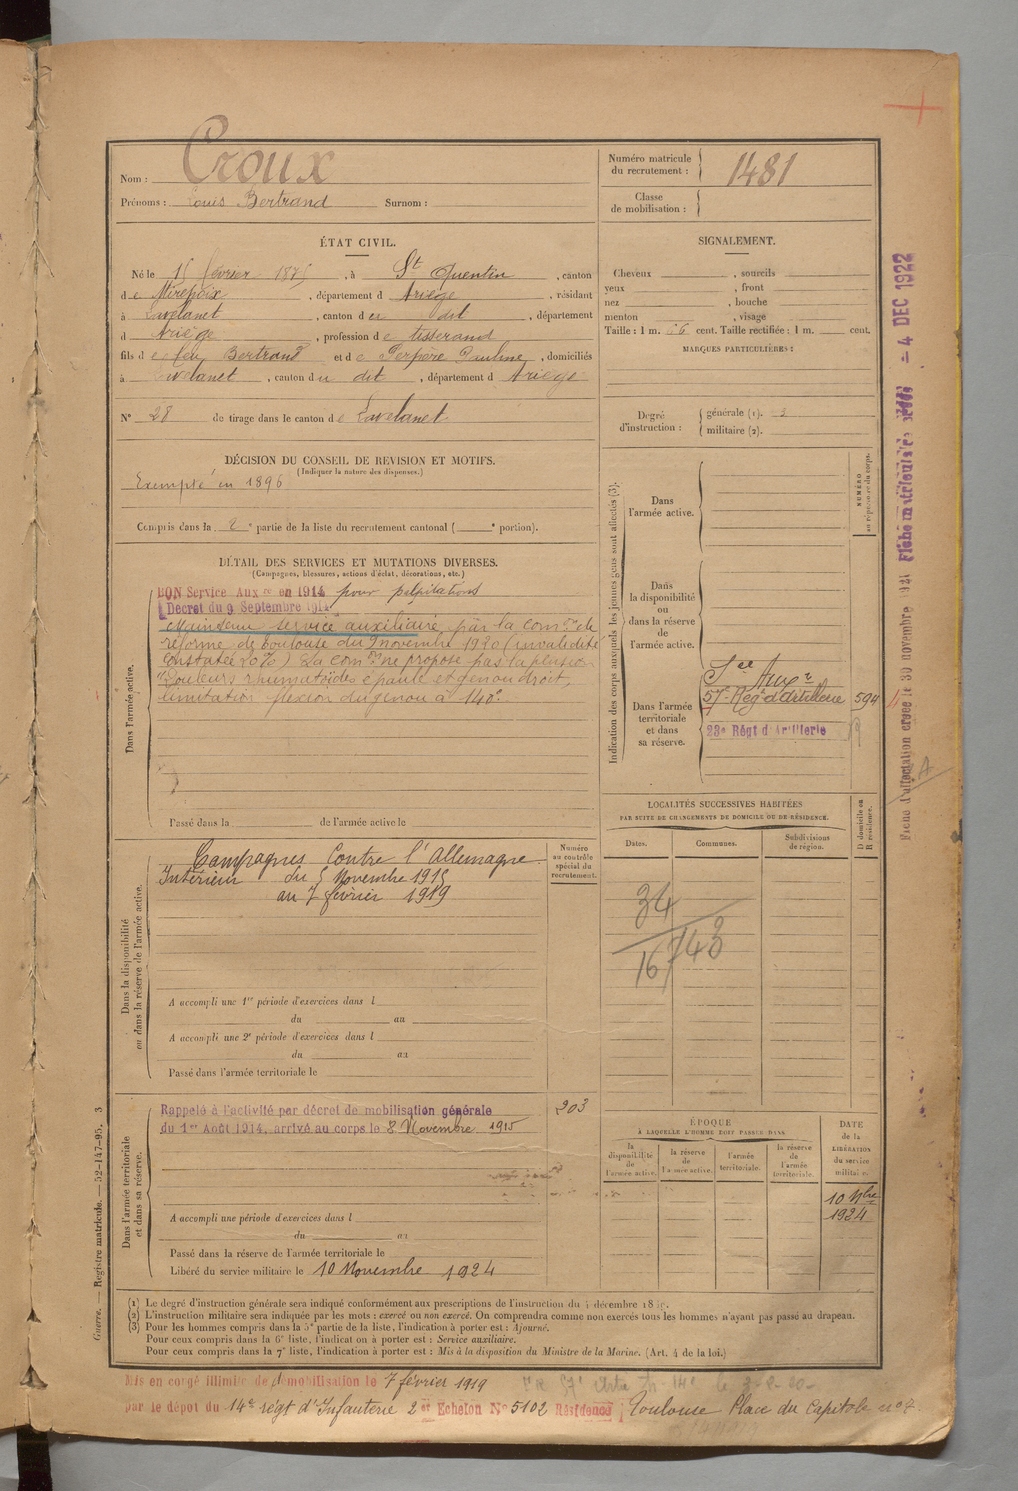 Nom : Croux
Prénoms : Louis Bertrand Surnom :
Numéro matricule du recrutement : 1481
Classe de mobilisation :
ÉTAT CIVIL.
Né le 15 février 1875, à St Quentin, canton
de Mirepoix, département d Ariège, résidant
à Lavelanet, canton du dit, département
d Ariège, profession de tisserand
fils de feu Bertrand et de Perpère Pauline, domiciliés
à Lavelanet, canton du dit, département d Ariège
N° 28 de tirage dans le canton de Lavelanet
SIGNALEMENT.
Cheveux , sourcils
yeux , front
nez , bouche
menton , visage
Taille : 1 m. 56 cent. Taille rectifiée : 1 m. cent.
MARQUES PARTICULIÈRES :
Degré d'instruction : générale (1). 3
militaire (2).
DÉCISION DU CONSEIL DE REVISION ET MOTIFS.
(Indiquer la nature des dispenses.)
Exempté en 1896
Compris dans la 2e partie de la liste du recrutement cantonal ( e portion).
DÉTAIL DES SERVICES ET MUTATIONS DIVERSES.
(Campagnes, blessures, actions d'éclat, décorations, etc.)
Dans l'armée active.
BON Service Auxre en 1914 pour palpitations
Décret du 9 Septembre 1914
Maintenu service auxiliaire par la comon de
réforme de Toulouse du 9 novembre 1920 (invalidité
constatée 20%) La comon ne propose pas la pension
"Douleurs rhumatoïdes épaule et genou droit,
limitation flexion du genou à 140°
Passé dans la de l'armée active le
Indication des corps auxquels les jeunes gens sont affectés (3).
NUMÉRO au répertoire du corps.
Dans l'armée active.
Dans la disponibilité ou dans la réserve de l'armée active.
Dans l'armée territoriale et dans sa réserve.
Sce Auxre
57e Régt d'Artillerie 594
23e Régt d'Artillerie
Dans la disponibilité ou dans la réserve de l'armée active.
Numéro au contrôle spécial du recrutement.
Campagnes Contre l'Allemagne
Intérieur du 5 Novembre 1915
au 7 février 1919
A accompli une 1re période d'exercices dans l
du au
A accompli une 2e période d'exercices dans l
du au
Passé dans l'armée territoriale le
LOCALITÉS SUCCESSIVES HABITÉES
PAR SUITE DE CHANGEMENTS DE DOMICILE OU DE RÉSIDENCE.
D domicile ou R résidence.
Dates. Communes. Subdivisions de région.
34
16/143
Dans l'armée territoriale et dans sa réserve.
Rappelé à l'activité par décret de mobilisation générale 203
du 1er Août 1914, arrivé au corps le 8 Novembre 1915
A accompli une période d'exercices dans l
du au
Passé dans la réserve de l'armée territoriale le
Libéré du service militaire le 10 Novembre 1924
ÉPOQUE
À LAQUELLE L'HOMME DOIT PASSER DANS
la disponibilité de l'armée active. la réserve de l'armée active. l'armée territoriale. la réserve de l'armée territoriale.
DATE de la LIBÉRATION du service militaire.
10 Nbre
1924
(1) Le degré d'instruction générale sera indiqué conformément aux prescriptions de l'instruction du 4 décembre 18
(2) L'instruction militaire sera indiquée par les mots : exercé ou non exercé. On comprendra comme non exercés tous les hommes n'ayant pas passé au drapeau.
(3) Pour les hommes compris dans la 5e partie de la liste, l'indication à porter est : Ajourné.
Pour ceux compris dans la 6e liste, l'indication à porter est : Service auxiliaire.
Pour ceux compris dans la 7e liste, l'indication à porter est : Mis à la disposition du Ministre de la Marine. (Art. 4 de la loi.)
Mis en congé illimité de démobilisation le 7 février 1919
par le dépôt du 14e régt d'Infanterie 2e Echelon N° 5102 Résidence Toulouse Place du Capitole no 7.
Guerre. — Registre matricule. — 52-147-95. 3
Fiche d'affectation créée le 30 novembre
Fiche matriculaire
- 4 DEC 1922